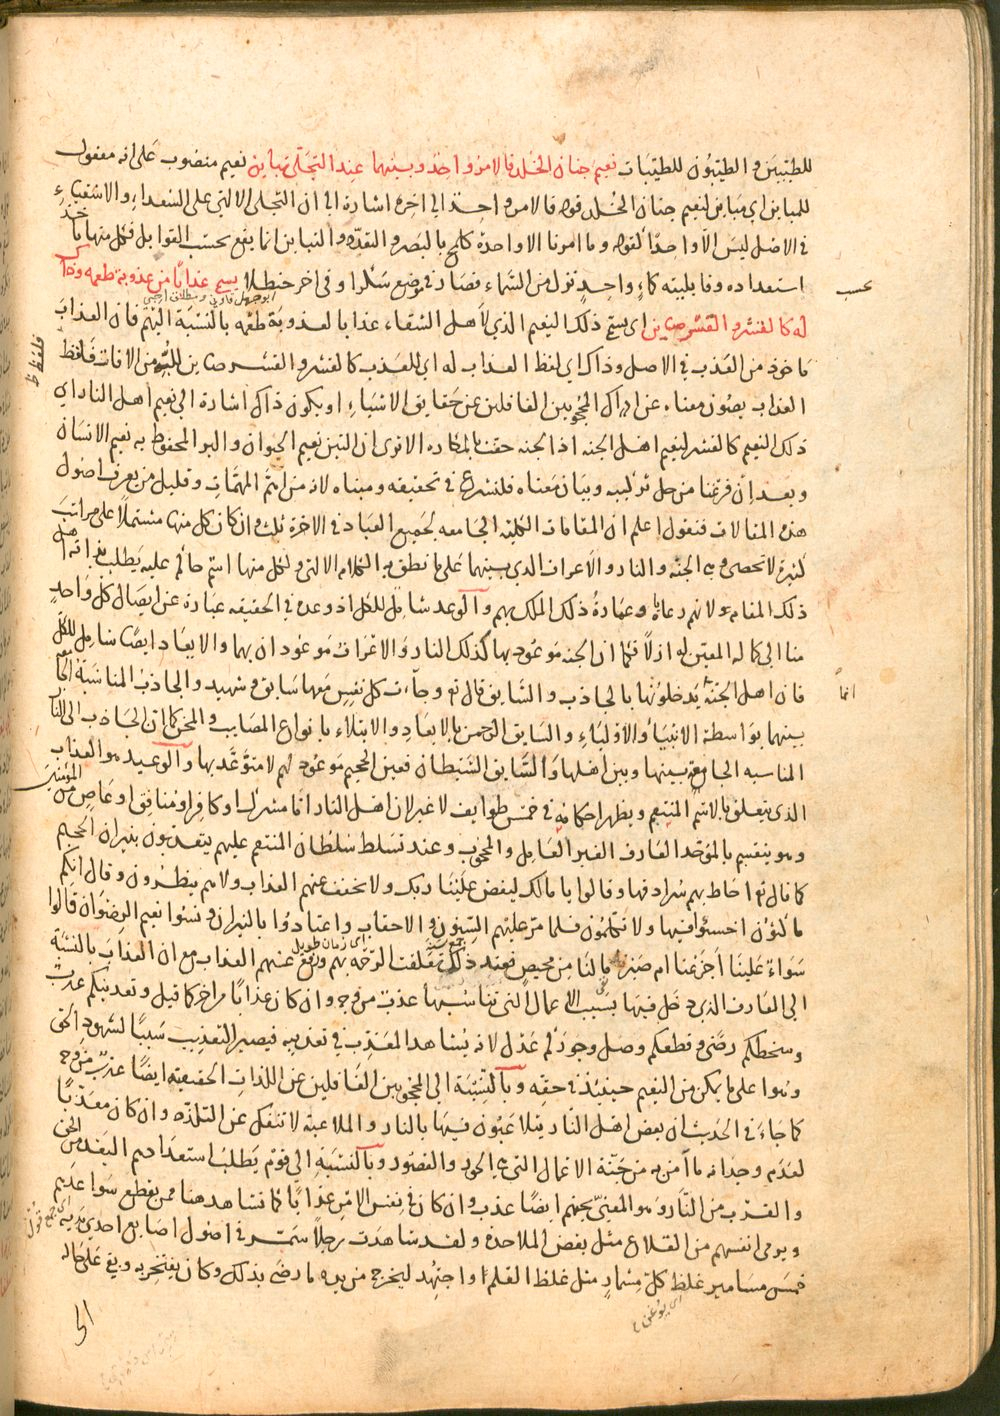 للطيبين والطيبون للطيبات نعيم جنان الخلد فالامر واحد وبينهما عند التجلى تباين نعيم منصوب على انه مفعول
للمباين اى مباين لنعيم جنان الخلد قوله فالامر واحد الى اخره اشارة الى ان التجلى الالهى على السعداء والاشقياء
فى الاصل ليس الا واحدا لقوله وما امرنا الا واحدة كلمح بالبصر والتعدد والتباين انما يقع بحسب القوابل فكل منها ياخذ
بحسب
استعداده وقابليته كماء واحد نزل من السماء فصار فى موضع سكرا وفى اخر حنظلا يسمى عذابا من عذوبة طعمه وذاك
له كالقشر والقشر صاين اى سمى ذلك النعيم الذى لاهل الشقاء عذابا لعذوبة طعمه بالنسبة اليهم فان العذاب
ماخوذ من العذب فى الاصل وذاك اى لفظ العذاب له اى للعذب كالقشر والقشر صاين للبه من الافات فلفظ
العذاب يصون معناه عن ادراك المحجوبين الغافلين عن حقايق الاشياء او يكون ذاك اشارة الى نعيم اهل النار اى
ذلك النعيم كالقشر لنعيم اهل الجنة اذ الجنة حفت بالمكاره الا ترى ان التبن نعيم الحيوان والبر المحفوظ به نعيم الانسان
وبعد ان فرغنا من حل تركيبه وبيان معناه فلنشرع فى تحقيقه ومبناه لانه من اتم المهمات وقليل من يعرف اصول
هذه المقالات فنقول اعلم ان المقامات الكلية الجامعة لجميع العباد فى الاخرة ثلث وان كان كل منها مشتملا على مراتب
كثيرة لا تحصى وهى الجنة والنار والاعراف الذى بينهما على ما نطق به الكلام الالهى ولكل منها اسم حاكم عليه يطلب بذاته اهل
ذلك المقام لانهم رعاياه وعمارة ذلك الملك بهم والوعد شامل للكل اذ وعده فى الحقيقة عبارة عن ايصال كل واحد
منا الى كماله المعين له ازلا فكما ان الجنة موعود بها كذلك النار والاعراف موعود ان بها والايعاد ايضا شامل للكل
فان اهل الجنة يدخلونها بالجاذب والسايق قال تع وجاءت كل نفس معها سايق وشهيد والجاذب المناسبة الجامعة
انما
بينهما بواسطة الانبياء والاولياء والسايق الرحمن بالايعاد والابتلاء بانواع المصايب والمحن كما ان الجاذب الى النار
المناسبه الجامعة بينها وبين اهلها والسايق الشيطان فعين الجحيم موعود لهم لا متوعد بها والوعيد هو العذاب
الذى يتعلق بالاسم المنتقم ويظهر احكامه فى خمس طوايف لا غير لان اهل النار اما مشرك او كافر او منافق او عاص من المؤمنين
وهو ينقسم بالموحد العارف الغير العامل والمحجوب وعند تسلط سلطان المنتقم عليهم يتعذبون بنيران الجحيم
كما قال تع احاط بهم سرادقها وقالوا يا مالك ليقض علينا ربك ولا يخفف عنهم العذاب ولا هم ينظرون وقال انكم
ماكثون اخسئوا فيها ولا تكلمون فلما مر عليهم السنون والاحقاب واعتادوا بالنيران ونسوا نعيم الرضوان قالوا
سواء علينا اجزعنا ام صبرنا مالنا من محيص فعند ذلك تعلقت الرحمة بهم ورفع عنهم العذاب مع ان العذاب بالنسبة
الى العارف الذى دخل فيها بسبب الاعمال التى تناسبها عذب من وجه وان كان عذابا من اخر كما قيل وتعذيبكم عذب
وسخطكم رضى وقطعكم وصل وجوركم عدل لانه يشاهد المعذب فى تعذيبه فيصير التعذيب سببا لشهود الحق
وهو اعلى ما يمكن من النعيم حينئذ فى حقه وبالنسبة الى المحجوبين الغافلين عن اللذات الحقيقية ايضا عذب من وجه
كما جاء فى الحديث ان بعض اهل النار يتلاعبون فيها بالنار والملاعبة لا تنفك عن التلذذ وان كان معذبا
لعدم وجدانه ما امن به من جنة الاعمال التى هى الحور والقصور وبالنسبة الى قوم يطلب استعدادهم البعد من الحق
والقرب من النار وهو المعنى بجهنم ايضا عذب وان كان فى نفس الامر عذابا كما نشاهد هنا ممن يقطع سواعدهم
ويرمى انفسهم من القلاع مثل بعض الملاحدة ولقد شاهدت رجلا سمر فى اصول اصابع احدى يديه
خمس مسامير غلظ كل مسمار مثل غلظ القلم واجتهد ليخرج من يده ما رضى بذلك وكان يفتخر به وبقى على حاله
الى